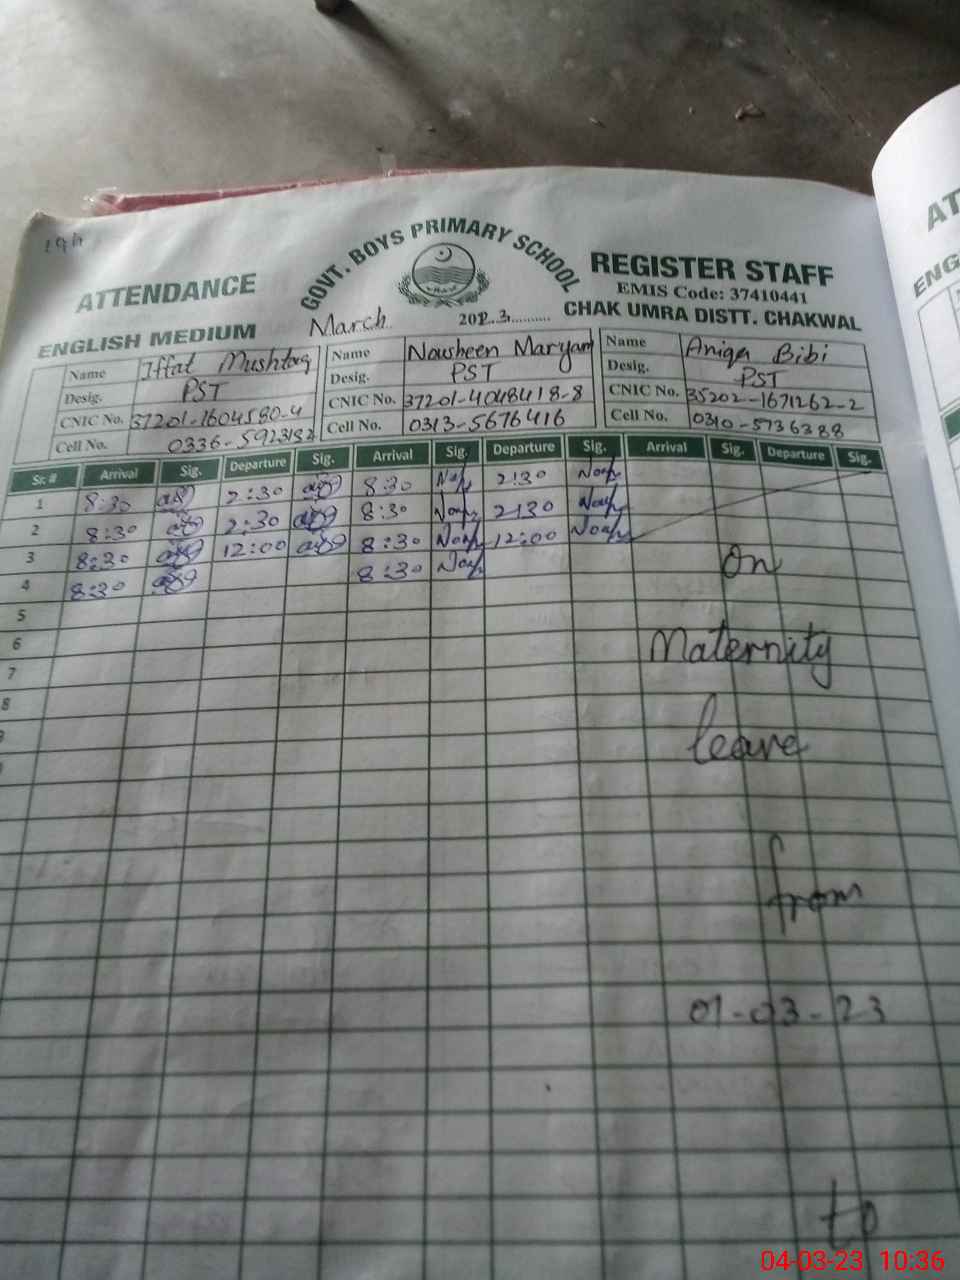 GOVT. BOYS PRIMARY SCHOOL
ATTENDANCE
REGISTER STAFF
EMIS Code: 37410441
ENGLISH MEDIUM
March 2023
CHAK UMRA DISTT. CHAKWAL
Name Iffat Mushtaq Name Nousheen Maryam Name Aniqa Bibi
Desig. PST Desig. PST Desig. PST
CNIC No. 37201-1604580-4 CNIC No. 37201-4048418-8 CNIC No. 35202-1671262-2
Cell No. 0336-5923132 Cell No. 0313-5676416 Cell No. 0310-5736388
Sr. # Arrival Sig. Departure Sig. Arrival Sig. Departure Sig. Arrival Sig. Departure Sig.
1 8:30 2:30 8:30 2:30
2 8:30 2:30 8:30 2:30
3 8:30 12:00 8:30 12:00
4 8:30 8:30
5
6
7
8
On
Maternity
leave
from
01-03-23
to
04-03-23 10:36